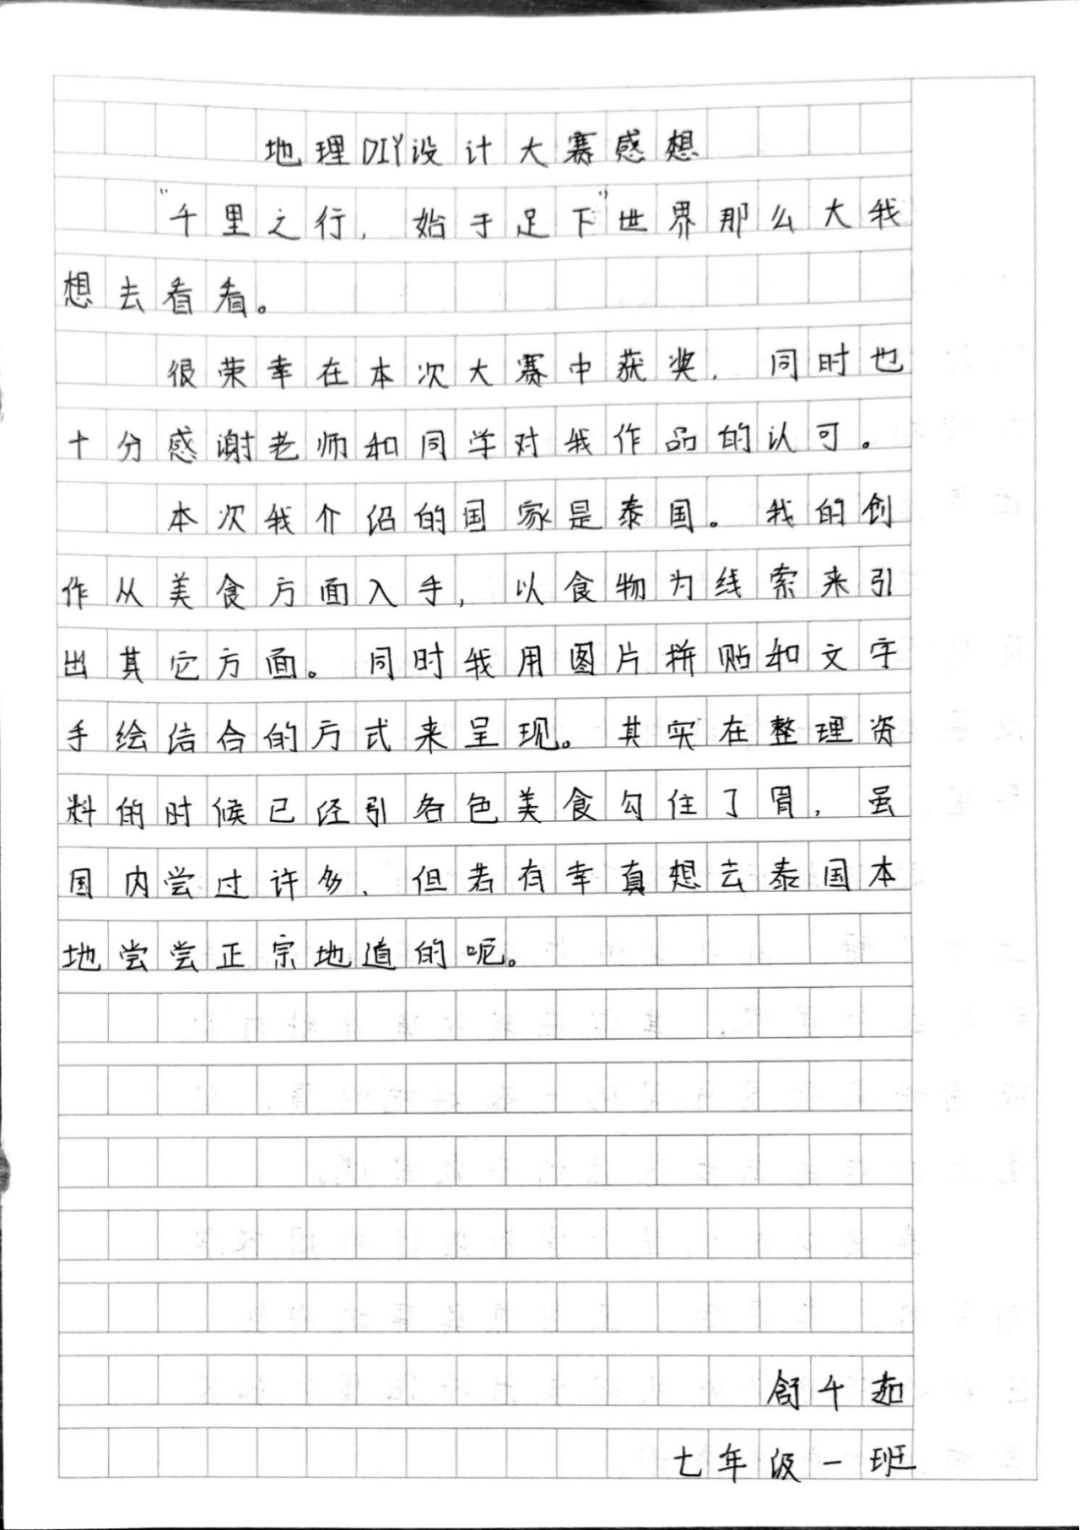 地理DIY设计大赛感想
“千里之行，始于足下”世界那么大我
想去看看。
很荣幸在本次大赛中获奖，同时也
十分感谢老师和同学对我作品的认可。
本次我介绍的国家是泰国。我的创
作从美食方面入手，以食物为线索来引
出其它方面。同时我用图片拼贴和文字
手绘结合的方式来呈现。其实在整理资
料的时候已经引各色美食勾住了胃，虽
国内尝过许多，但若有幸真想去泰国本
地尝尝正宗地道的呢。
七年级一班